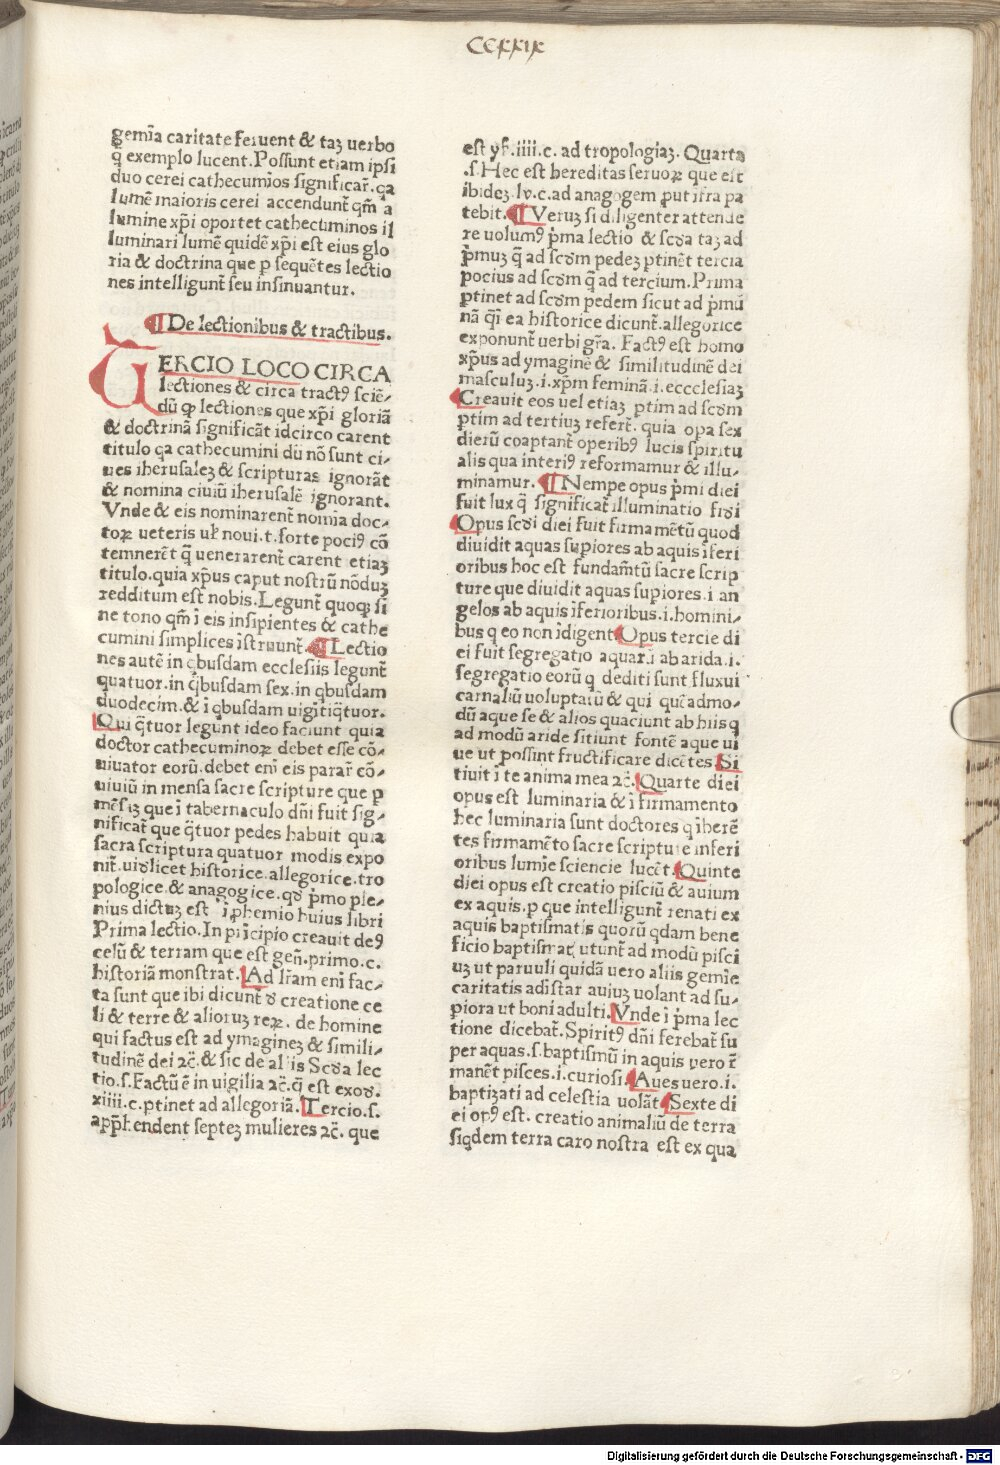 CCxxix
gemīa caritate feruent & taꝫ uerbo
q̄ exemplo lucent. Possunt etiam ipsi
duo cerei cathecumīos significar̄. qa
lumē maioris cerei accendunt̄ qm̄ a
lumine xp̄i oportet cathecuminos il
luminari lumē quidē xp̄i est eius glo
ria & doctrina que p sequētes lectio
nes intelligunt̄ seu insinuantur.
¶ De lectionibus & tractibus.
TERCIO LOCO CIRCA
lectiones & circa tractꝰ sciē-
dū ꝙ lectiones que xp̄i gloriā
& doctrinā significāt idcirco carent
titulo qa cathecumini dū nō sunt ci-
ues iherusaleꝫ & scripturas ignorāt
& nomina ciuiū iherusalē ignorant.
Vnde & eis nominarent̄ nomīa doc-
toꝝ ueteris ul̄ noui.t. forte pociꝰ cō
temnerēt q̄ uenerarent̄ carent etiaꝫ
titulo. quia xp̄us caput nostrū nōduꝫ
redditum est nobis. Legunt̄ quoqꝫ si
ne tono qm̄ ī eis insipientes & cathe
cumini simplices īstruunt̄. ¶ Lectio
nes autē in qbusdam ecclesiis legunt̄
quatuor. in q̄busdam sex. in qbusdam
duodecim. & ī qbusdam uigītiq̄tuor.
Qui q̄tuor legunt ideo faciunt quia
doctor cathecuminoꝝ debet esse cō-
uiuator eorū. debet enī eis parar̄ cō-
uiuiū in mensa sacre scripture que p
mēsiꝫ que ī tabernaculo dn̄i fuit sig-
nificat̄ que q̄tuor pedes habuit quia
sacra scriptura quatuor modis expo
nit̄. uidlicet historice. allegorice. tro
pologice. & anagogice. qd p̄mo ple-
nius dictuꝫ est ī phemio huius libri
Prima lectio. In prīcipio creauit deꝰ
celū & terram que est gen̄. primo. c.
historiā monstrat. Ad lr̄am enī fac-
ta sunt que ibi dicunt̄ d creatione ce
li & terre & alioruꝫ reꝝ. de homine
qui factus est ad ymagineꝫ & simili-
tudinē dei ⁊c̄. & sic de aliis Scda lec
tio. s. Factū ē in uigilia ⁊c̄. q̄ est exod.
xiiii. c. ptinet ad allegoriā. Tercio. s.
app̄hendent septeꝫ mulieres ⁊c̄. que
est ys̄. iiii. c. ad tropologiaꝫ. Quarta
.s. Hec est hereditas seruoꝝ que est
ibideꝫ. lv. c. ad anagogem put īfra pa
tebit. ¶ Veruꝫ si diligenter attende
re uolumꝰ p̄ma lectio & scda taꝫ ad
p̄muꝫ q̄ ad scdm pedeꝫ ptinēt tercia
pocius ad scdm q̄ ad tercium. Prima
ptinet ad scdm pedem sicut ad p̄mū
nā q̄i ea historice dicunt̄. allegorice
exponunt̄ uerbi gr̄a. Factꝰ est homo
xp̄us ad ymaginē & similitudinē dei
masculuꝫ. i. xp̄m feminā. i. eccclesiaꝫ
Creauit eos uel etiaꝫ ptim ad scdm
ptim ad tertiuꝫ refert̄. quia opa sex
dierū coaptant̄ operibꝰ lucis spiritu
alis qua interiꝰ reformamur & illu-
minamur. ¶ Nempe opus p̄mi diei
fuit lux q̄ significat̄ illuminatio fidi
Opus scdi diei fuit firmamētū quod
diuidit aquas supiores ab aquis īferi
oribus hoc est fundam̄tū sacre scrip
ture que diuidit aquas supiores. i an
gelos ab aquis īferioribus. i. homini-
bus q eo non īdigent Opus tercie di
ei fuit segregatio aquaꝝ.i ab arida. i.
segregatio eorū q dediti sunt fluxui
carnaliū uoluptatū & qui quēadmo-
dū aque se & alios quaciunt ab hiis q
ad modū aride sitiunt fontē aque ui
ue ut possint fructificare dicētes Si
tiuit ī te anima mea ⁊c̄. Quarte diei
opus est luminaria & ī firmamento
hec luminaria sunt doctores q īherē
tes firmamēto sacre scripture inferi
oribus lumīe sciencie lucēt. Quinte
diei opus est creatio pisciū & auium
ex aquis. p que intelligunt̄ renati ex
aquis baptismatis quorū qdam bene
ficio baptismat̄ utunt̄ ad modū pisci
uꝫ ut paruuli quidā uero aliis gemīe
caritatis ad īstar auiuꝫ uolant ad su-
piora ut boni adulti. Vnde ī p̄ma lec
tione dicebat̄. Spiritꝰ dn̄i ferebat̄ su
per aquas. s. baptismū in aquis uero r̄
manēt pisces. i. curiosi. Aues uero. i.
baptiꝫati ad celestia uolāt Sexte di
ei opꝰ est. creatio animaliū de terra
siqdem terra caro nostra est ex qua
Digitalisierung gefördert durch die Deutsche Forschungsgemeinschaft - DFG